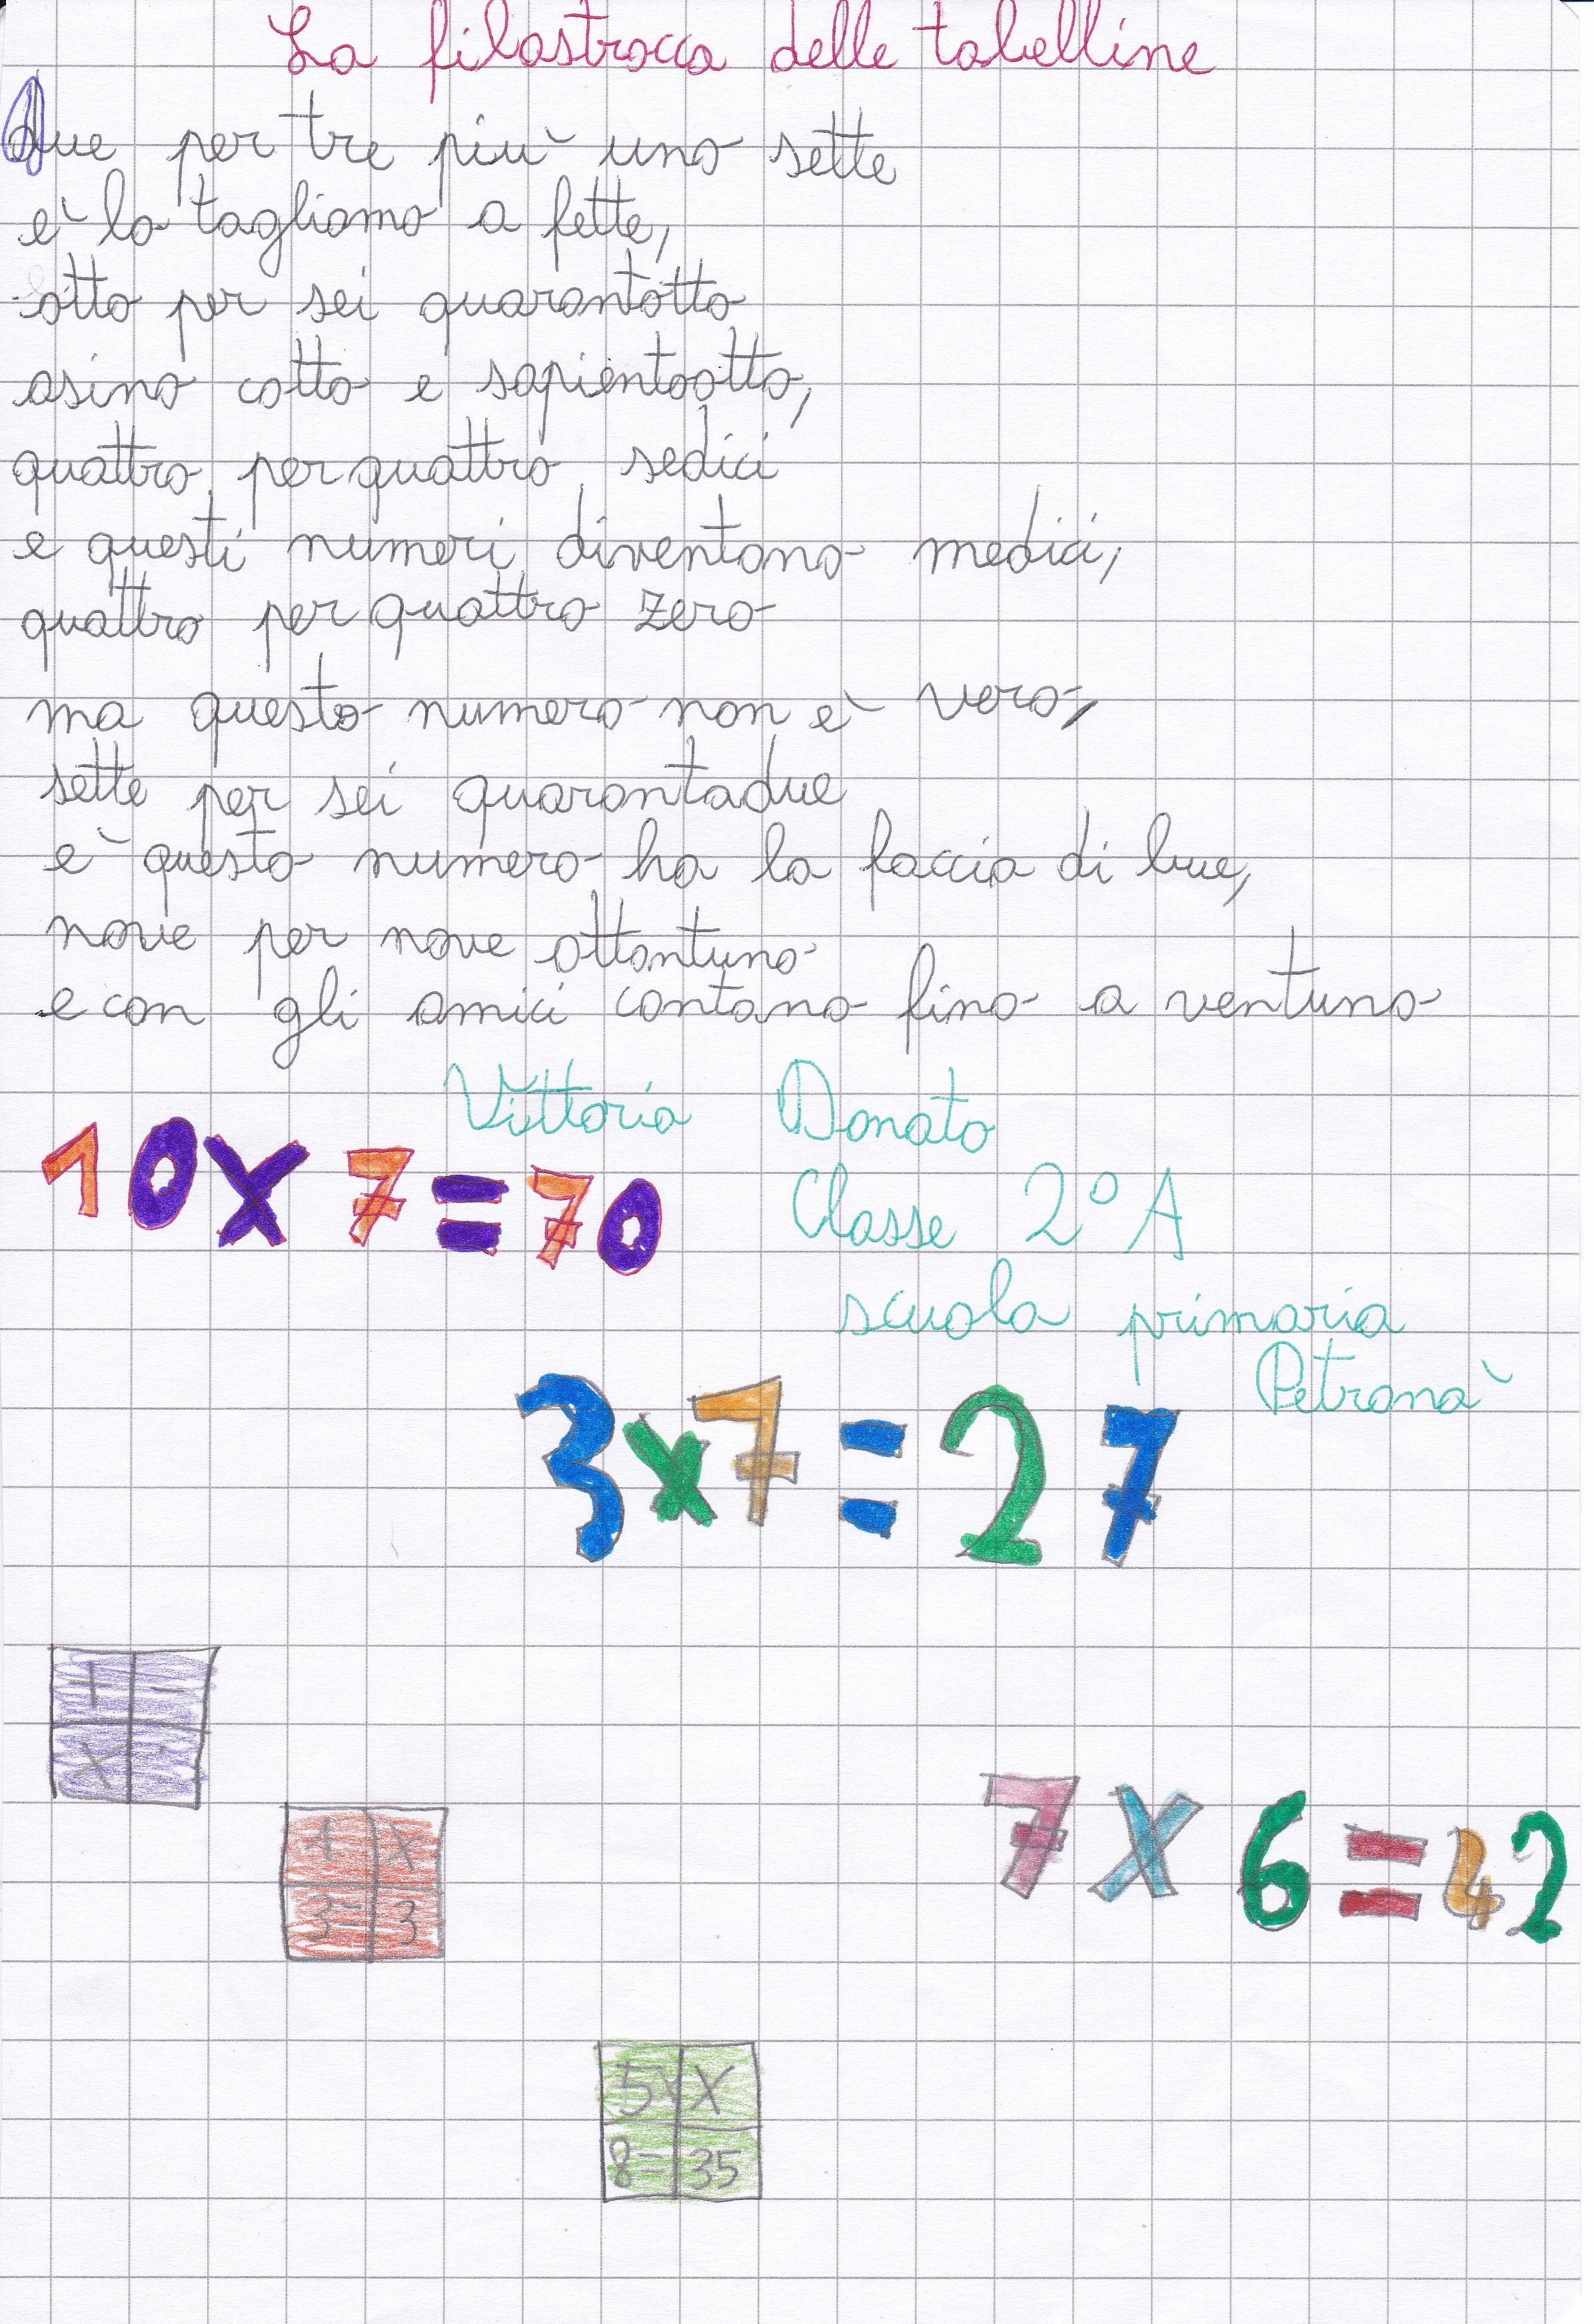 La filastrocca delle tabelline
Due per tre più uno sette
e lo tagliamo a fette,
otto per sei quarantotto
asino cotto e sapientootto,
quattro per quattro sedici
e questi numeri diventano medici,
quattro per quattro zero
ma questo numero non è vero,
sette per sei quarantadue
e questo numero ha la faccia di bue,
nove per nove ottantuno
e con gli amici contano fino a ventuno
Vittoria Donato
10x7=70
Classe 2° A
scuola primaria
Petronà
3x7=27
+ -
x :
7x6=42
1 x
3= 3
5 x
8= 35